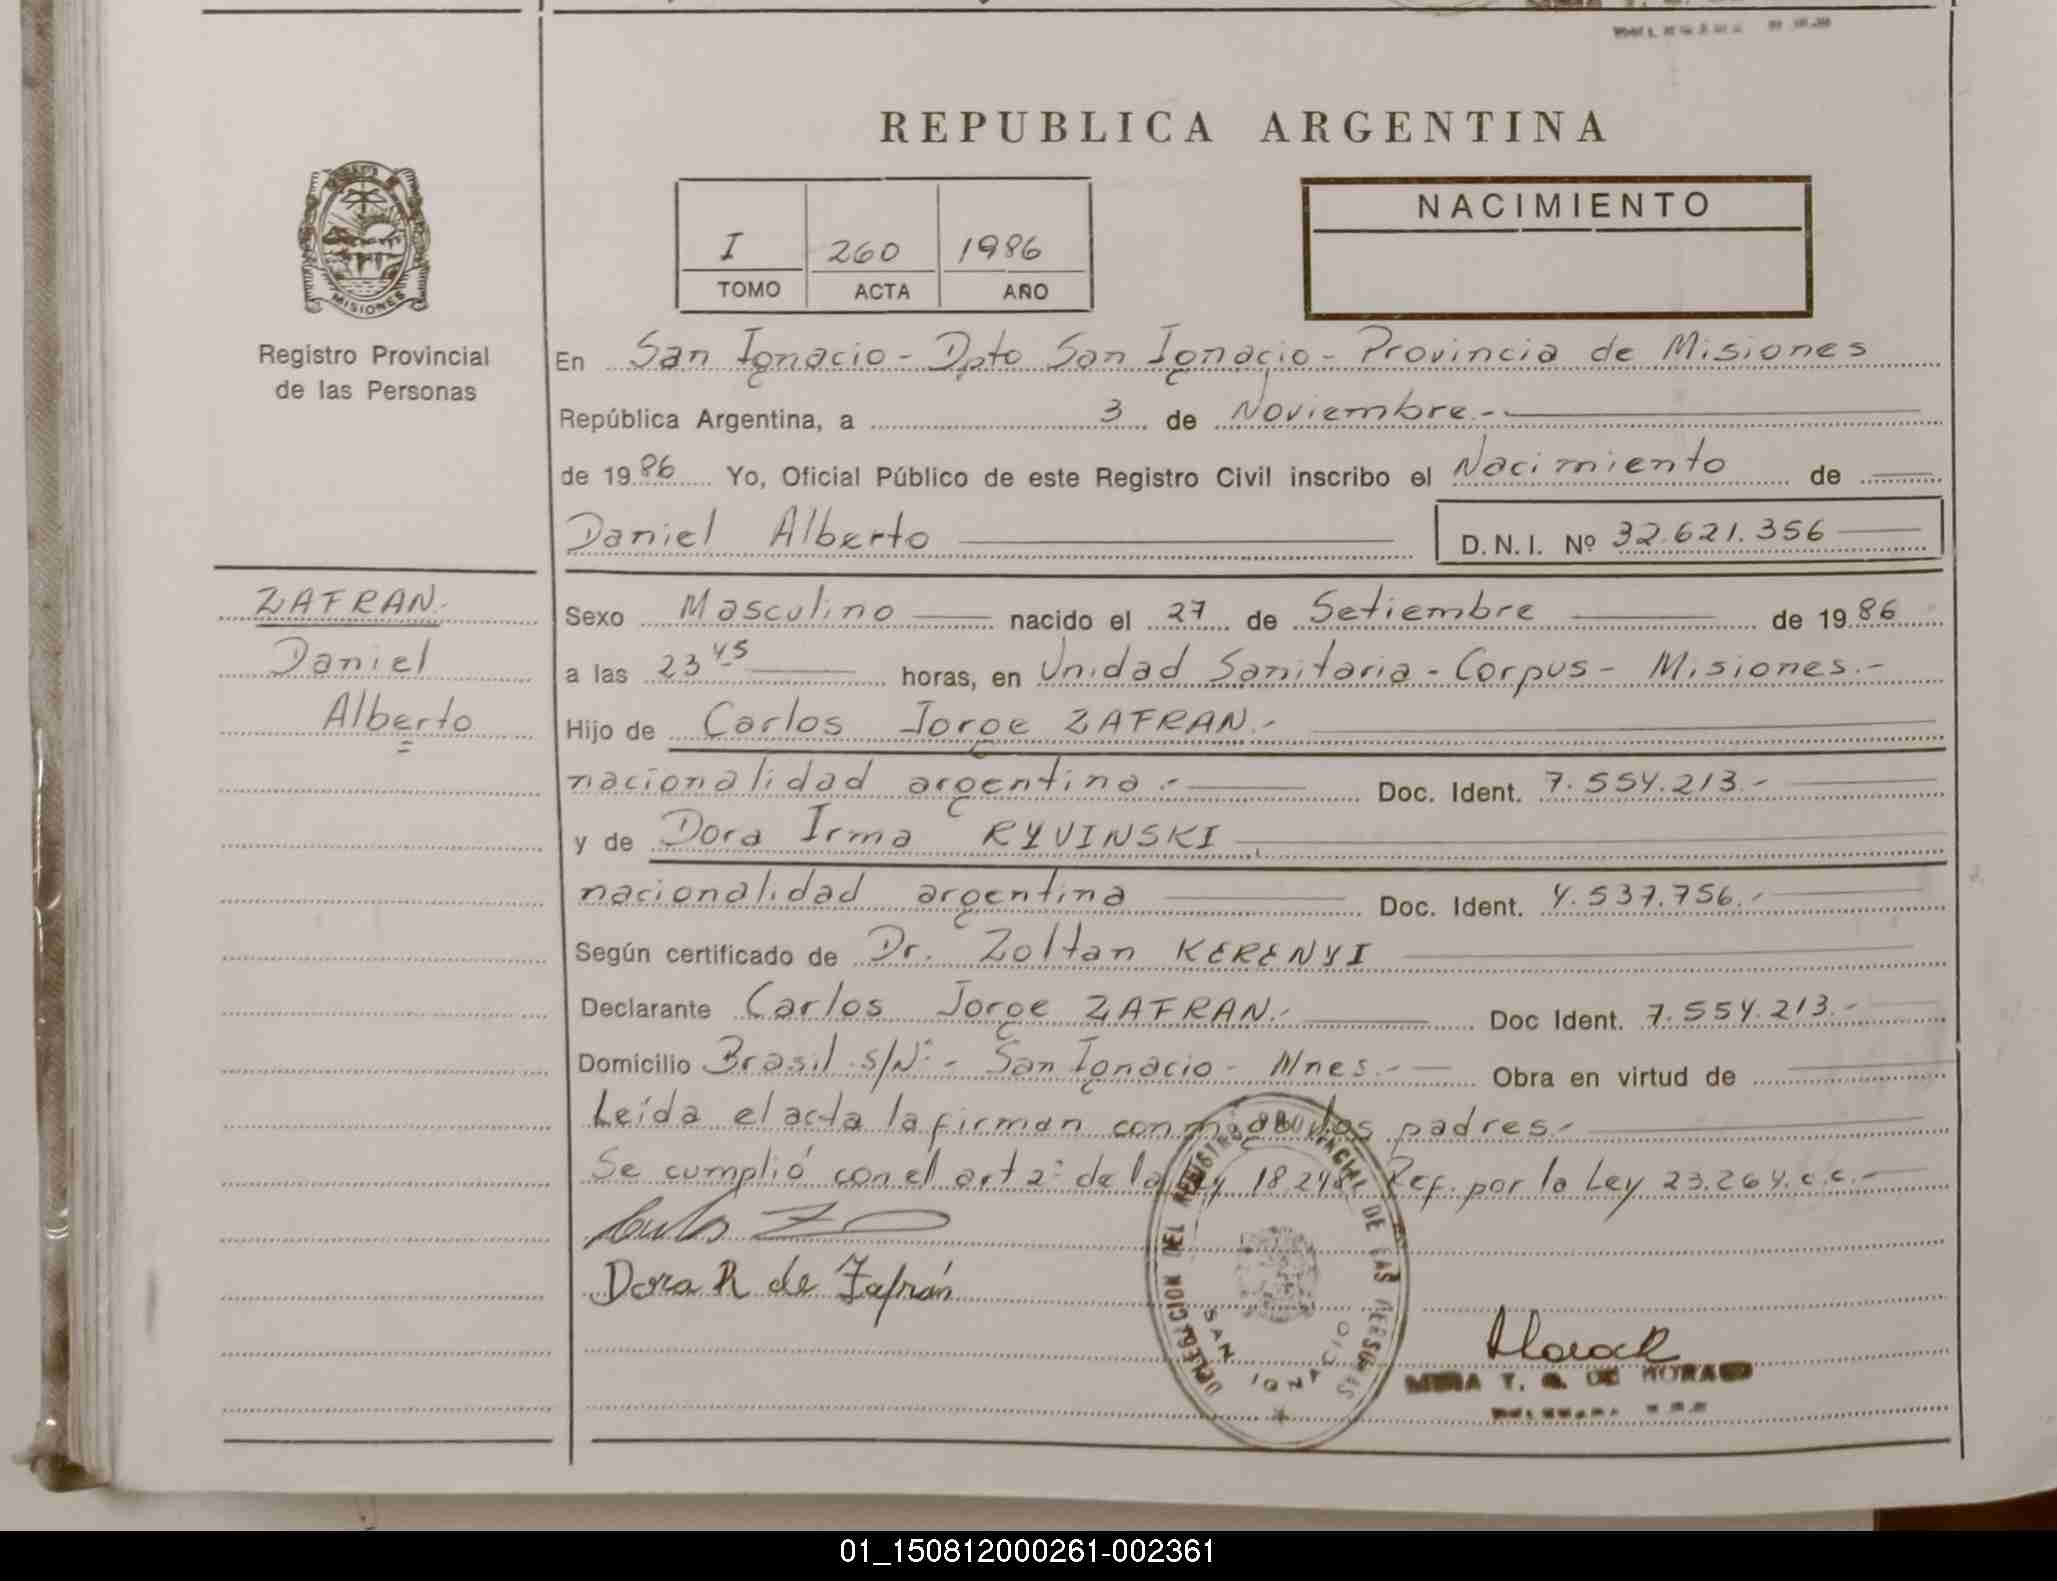 REPUBLICA ARGENTINA
NACIMIENTO
I 260 1986
TOMO ACTA AÑO
MISIONES
Registro Provincial
de las Personas
En San Ignacio - Dpto San Ignacio - Provincia de Misiones
República Argentina, a 3 de Noviembre.-
de 1986 Yo, Oficial Público de este Registro Civil inscribo el Nacimiento de
Daniel Alberto D.N.I. Nº 32.621.356
ZAFRAN.-
Daniel
Alberto
Sexo Masculino nacido el 27 de Setiembre de 1986
a las 23 45 horas, en Unidad Sanitaria - Corpus - Misiones.-
Hijo de Carlos Jorge ZAFRAN.-
nacionalidad argentina.- Doc. Ident. 7.554.213.-
y de Dora Irma RYVINSKI
nacionalidad argentina Doc. Ident. 4.537.756.-
Según certificado de Dr. Zoltan KERENYI
Declarante Carlos Jorge ZAFRAN.- Doc Ident. 7.554.213.-
Domicilio Brasil S/Nº - San Ignacio - Mnes.- Obra en virtud de
Leída el acta la firman conmigo los padres.-
Se cumplió con el art 2º de la Ley 18.248 Ref. por la Ley 23.264.c.c.-
Carlos Z
Dora R de Zafrán
DELEGACION DEL REGISTRO PROVINCIAL DE LAS PERSONAS
SAN IGNACIO
T. G. DE MORA
01_150812000261-002361